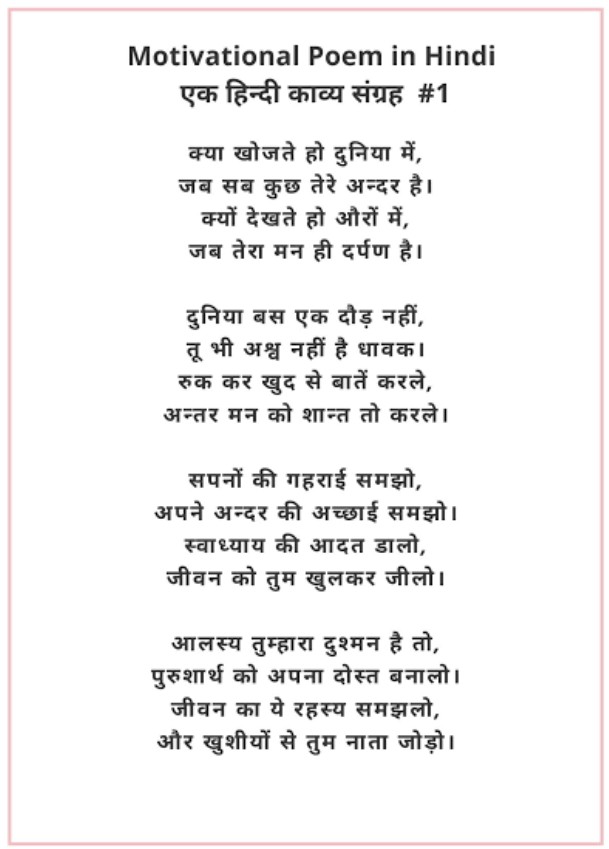 Motivational Poem in Hindi
एक हिन्दी काव्य संग्रह #1
क्या खोजते हो दुनिया में,
जब सब कुछ तेरे अन्दर है।
क्यों देखते हो औरों में,
जब तेरा मन ही दर्पण है।
दुनिया बस एक दौड़ नहीं,
तू भी अश्व नहीं है धावक।
रुक कर खुद से बातें करले,
अन्तर मन को शान्त तो करले।
सपनों की गहराई समझो,
अपने अन्दर की अच्छाई समझो।
स्वाध्याय की आदत डालो,
जीवन को तुम खुलकर जीलो।
आलस्य तुम्हारा दुश्मन है तो,
पुरुशार्थ को अपना दोस्त बनालो।
जीवन का ये रहस्य समझलो,
और खुशीयों से तुम नाता जोड़ो।